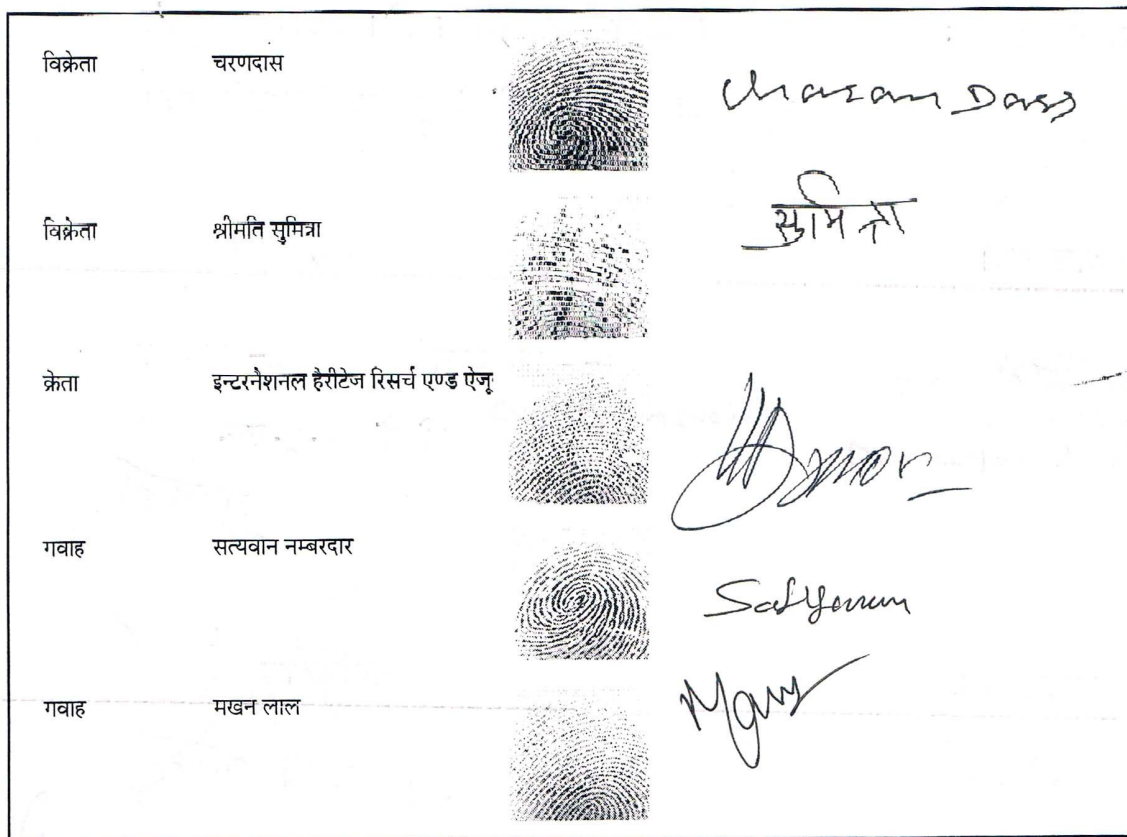 विक्रेता चरणदास Charan Dass
विक्रेता श्रीमति सुमित्रा सुमित्रा
क्रेता इन्टरनैशनल हैरीटेज रिसर्च एण्ड ऐजू
गवाह सत्यवान नम्बरदार Satyawan
गवाह मखन लाल